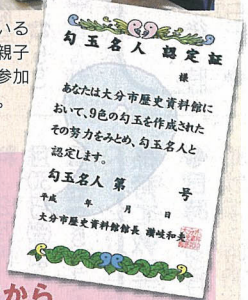 いる
親子
参加
。
勾玉名人 認定証
様
あなたは大分市歴史資料館に
おいて、9色の勾玉を作成された
その努力をみとめ、勾玉名人と
認定します。
勾玉名人 第 号
平成 年 月 日
大分市歴史資料館館長 讃岐和夫
から